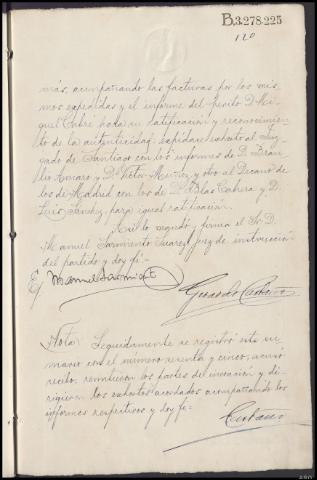 B.3.278.225
120
más, acompañando las facturas por los mis-
mos expedidas y el informe del perito D. Mi-
guel Cabré para su ratificación y reconocimien-
to de la autenticidad, expídase exhorto al Juz-
gado de Santiago con los informes de D. Brau-
lio Amaro y D. Victor Muñoz, y otro al Decano de
los de Madrid con los de D. Blas Cabrera y D.
Luis Sanchez, para igual ratificación.
Así lo mandó y firma el Sr. D.
Manuel Sarmiento Suarez, Juez de instrucción
del partido y doy fé.-
E/ Manuel Sarmiento
Nota/ Seguidamente se registró este su-
mario con el número sesenta y cinco, acusó
recibo, remitieron los partes de incoación y di-
rigieron los exhortos acordados acompañando los
informes respectivos y doy fé-